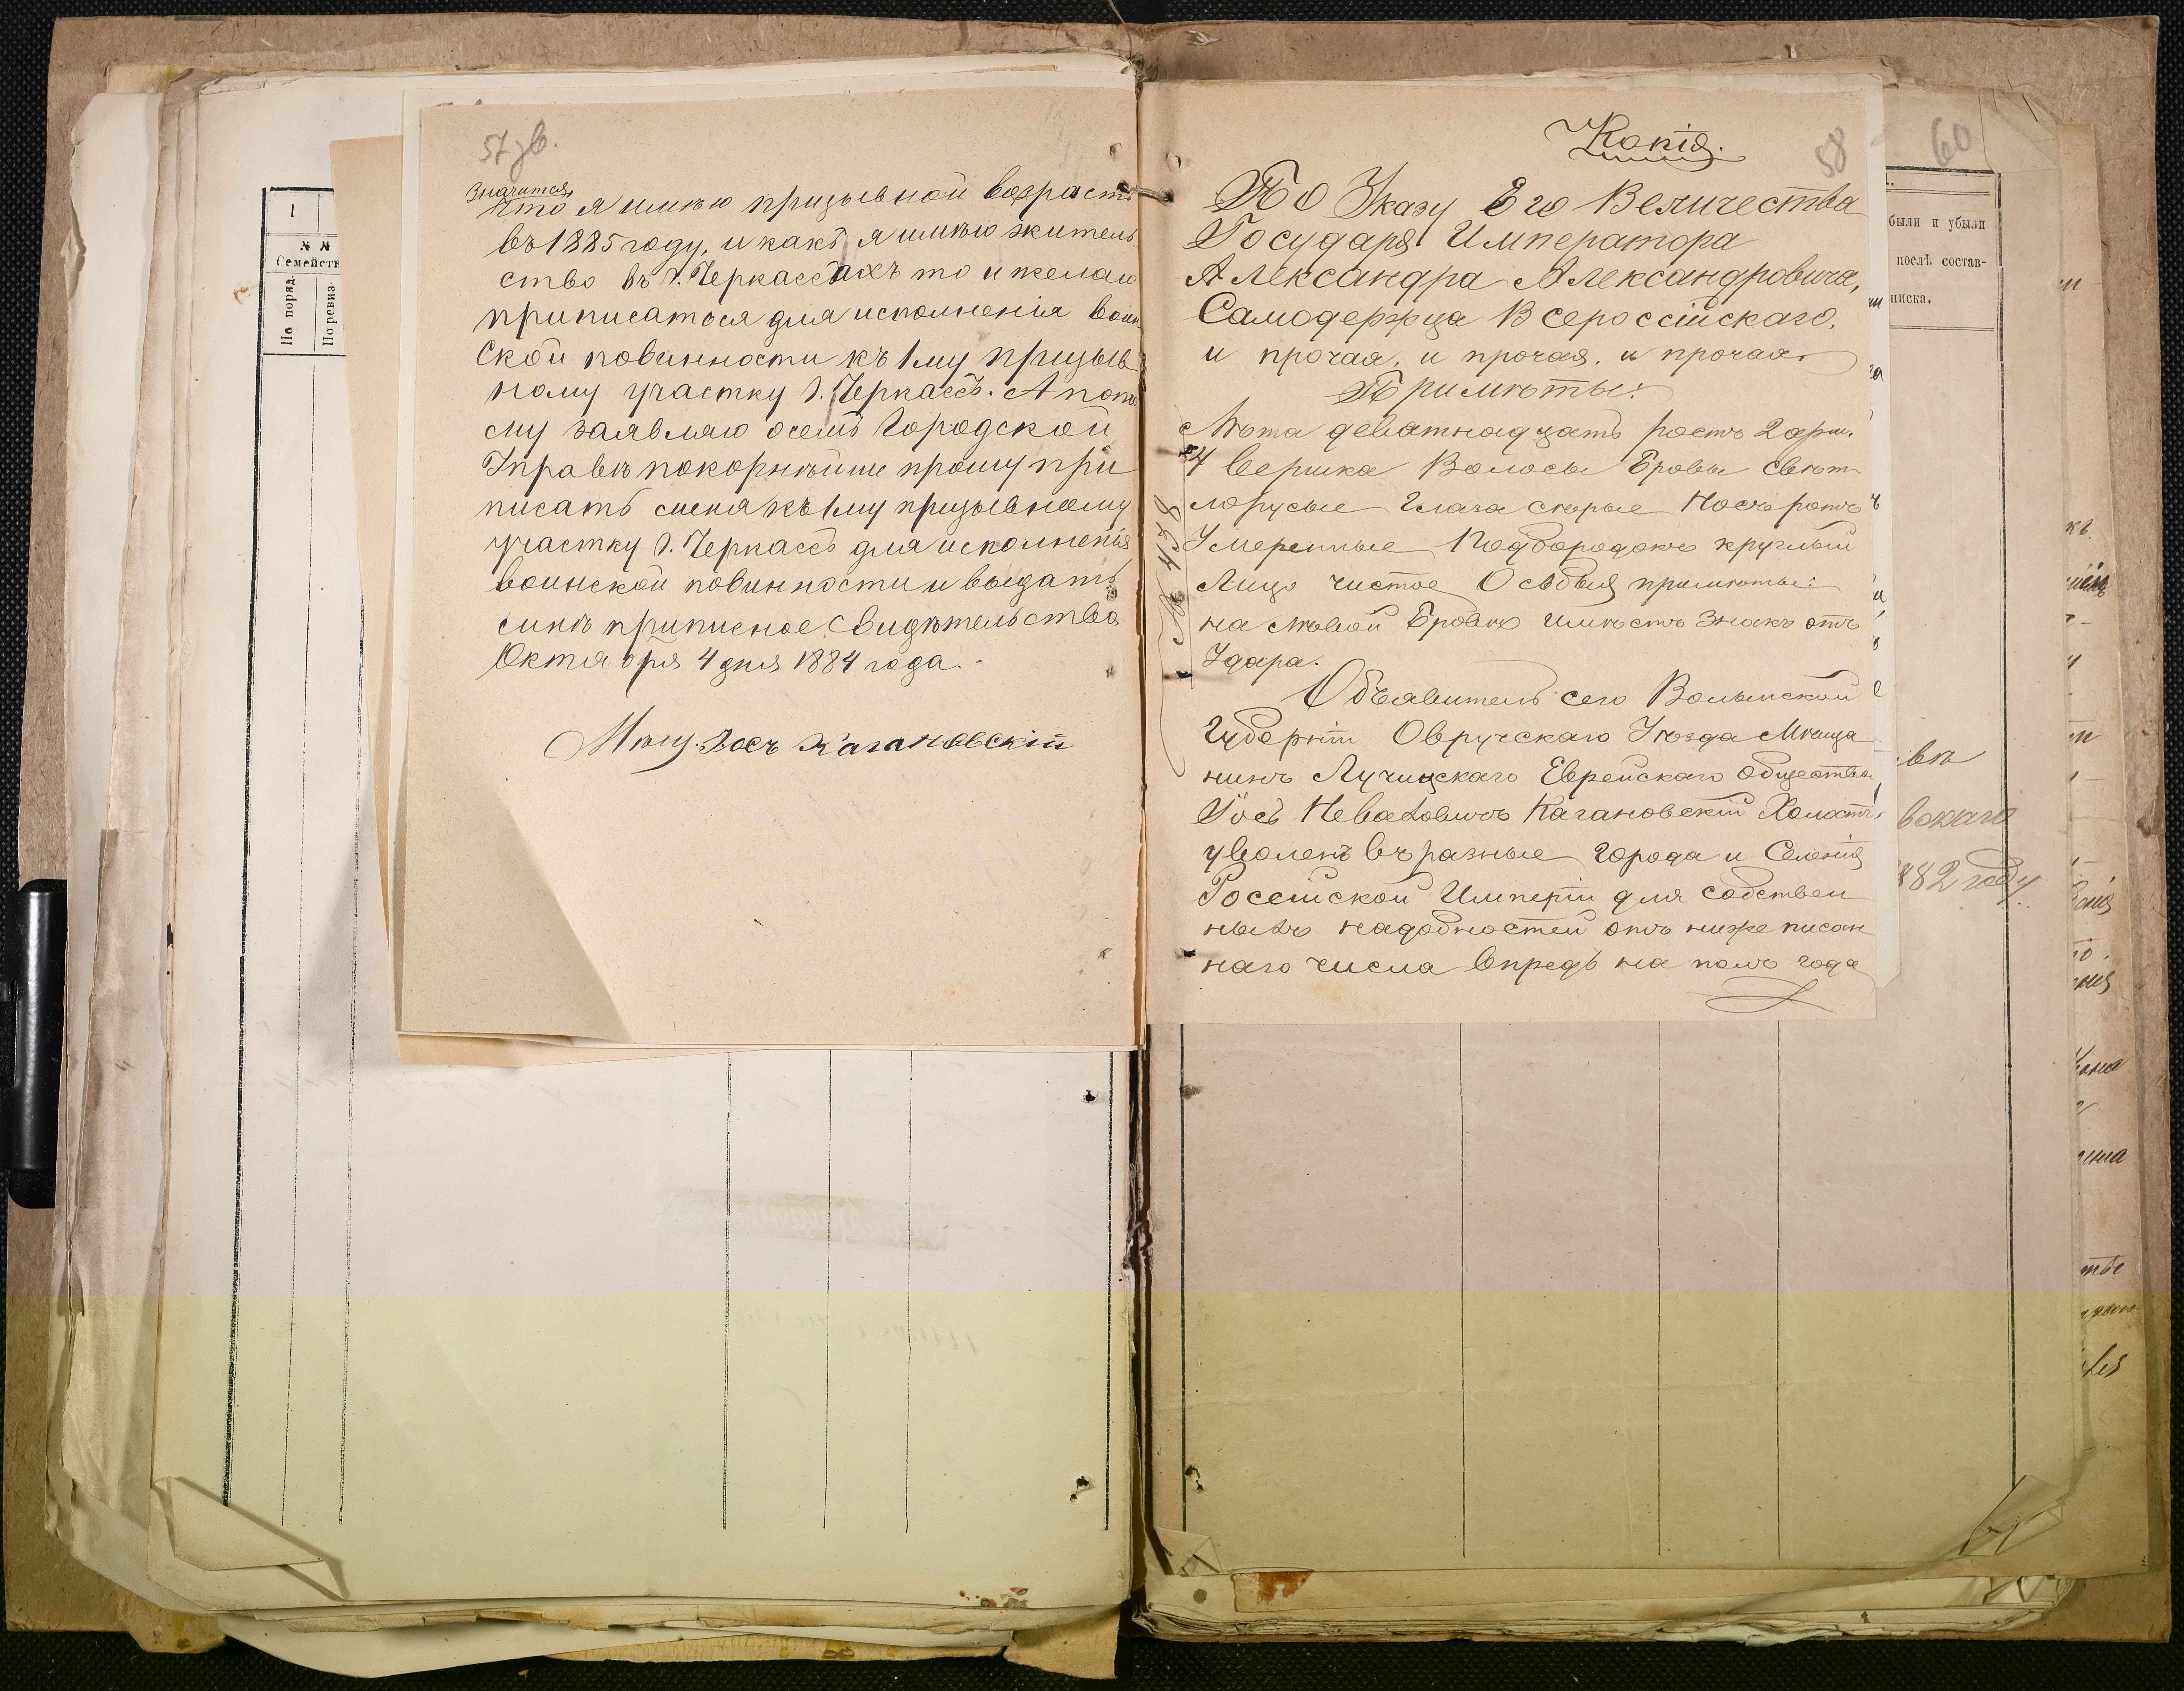 57 зв.
значится,
что я имѣю призывной возрастъ
въ 1885 году, и какъ я имѣю житель
ство въ г. Черкассахъ то и желаю
приписаться для исполненія воин
ской повинности къ 1му призыв
ному участку г. Черкассъ. А пото
му заявляю о семъ Городской
Управѣ покорнѣйше прошу при
писать меня къ 1му призывному
участку г. Черкассъ для исполненія
воинской повинности и выдать
мнѣ приписное свидѣтельство
Октября 4 дня 1884 года.
Мѣщ. Іосъ Кагановскій
1
№ №
Семейств
По поряд.
По ревиз.
58
Копія.
По Указу Его Величества
Государя Императора
Александра Александровича,
Самодержца Всероссійскаго,
и прочая, и прочая, и прочая.
Примѣты:
Лѣта деватнадцать ростъ 2 арш.
4 вершка Волосы Бровы свѣт
лорусые Глаза сѣрые Носъ ротъ
Умеренные Подбородокъ круглый
Лицо чистое Особыя примѣты:
на лѣвой Бровѣ имѣетъ знакъ отъ
Удара.
Объявитель сего Волынской
Губерніи Овручскаго Уѣзда Мѣща
нинъ Лучицскаго Еврейскаго общества
Іосъ Неваховичъ Кагановскій Холостъ,
уволенъ въ разные города и Селенія
Россійской Имперіи для собствен
ныхъ надобностей отъ нижеписан
наго числа впредь на полъ года
№ 4158
60
были и убыли
послѣ состав-
писка.
вокаго
1882 году.